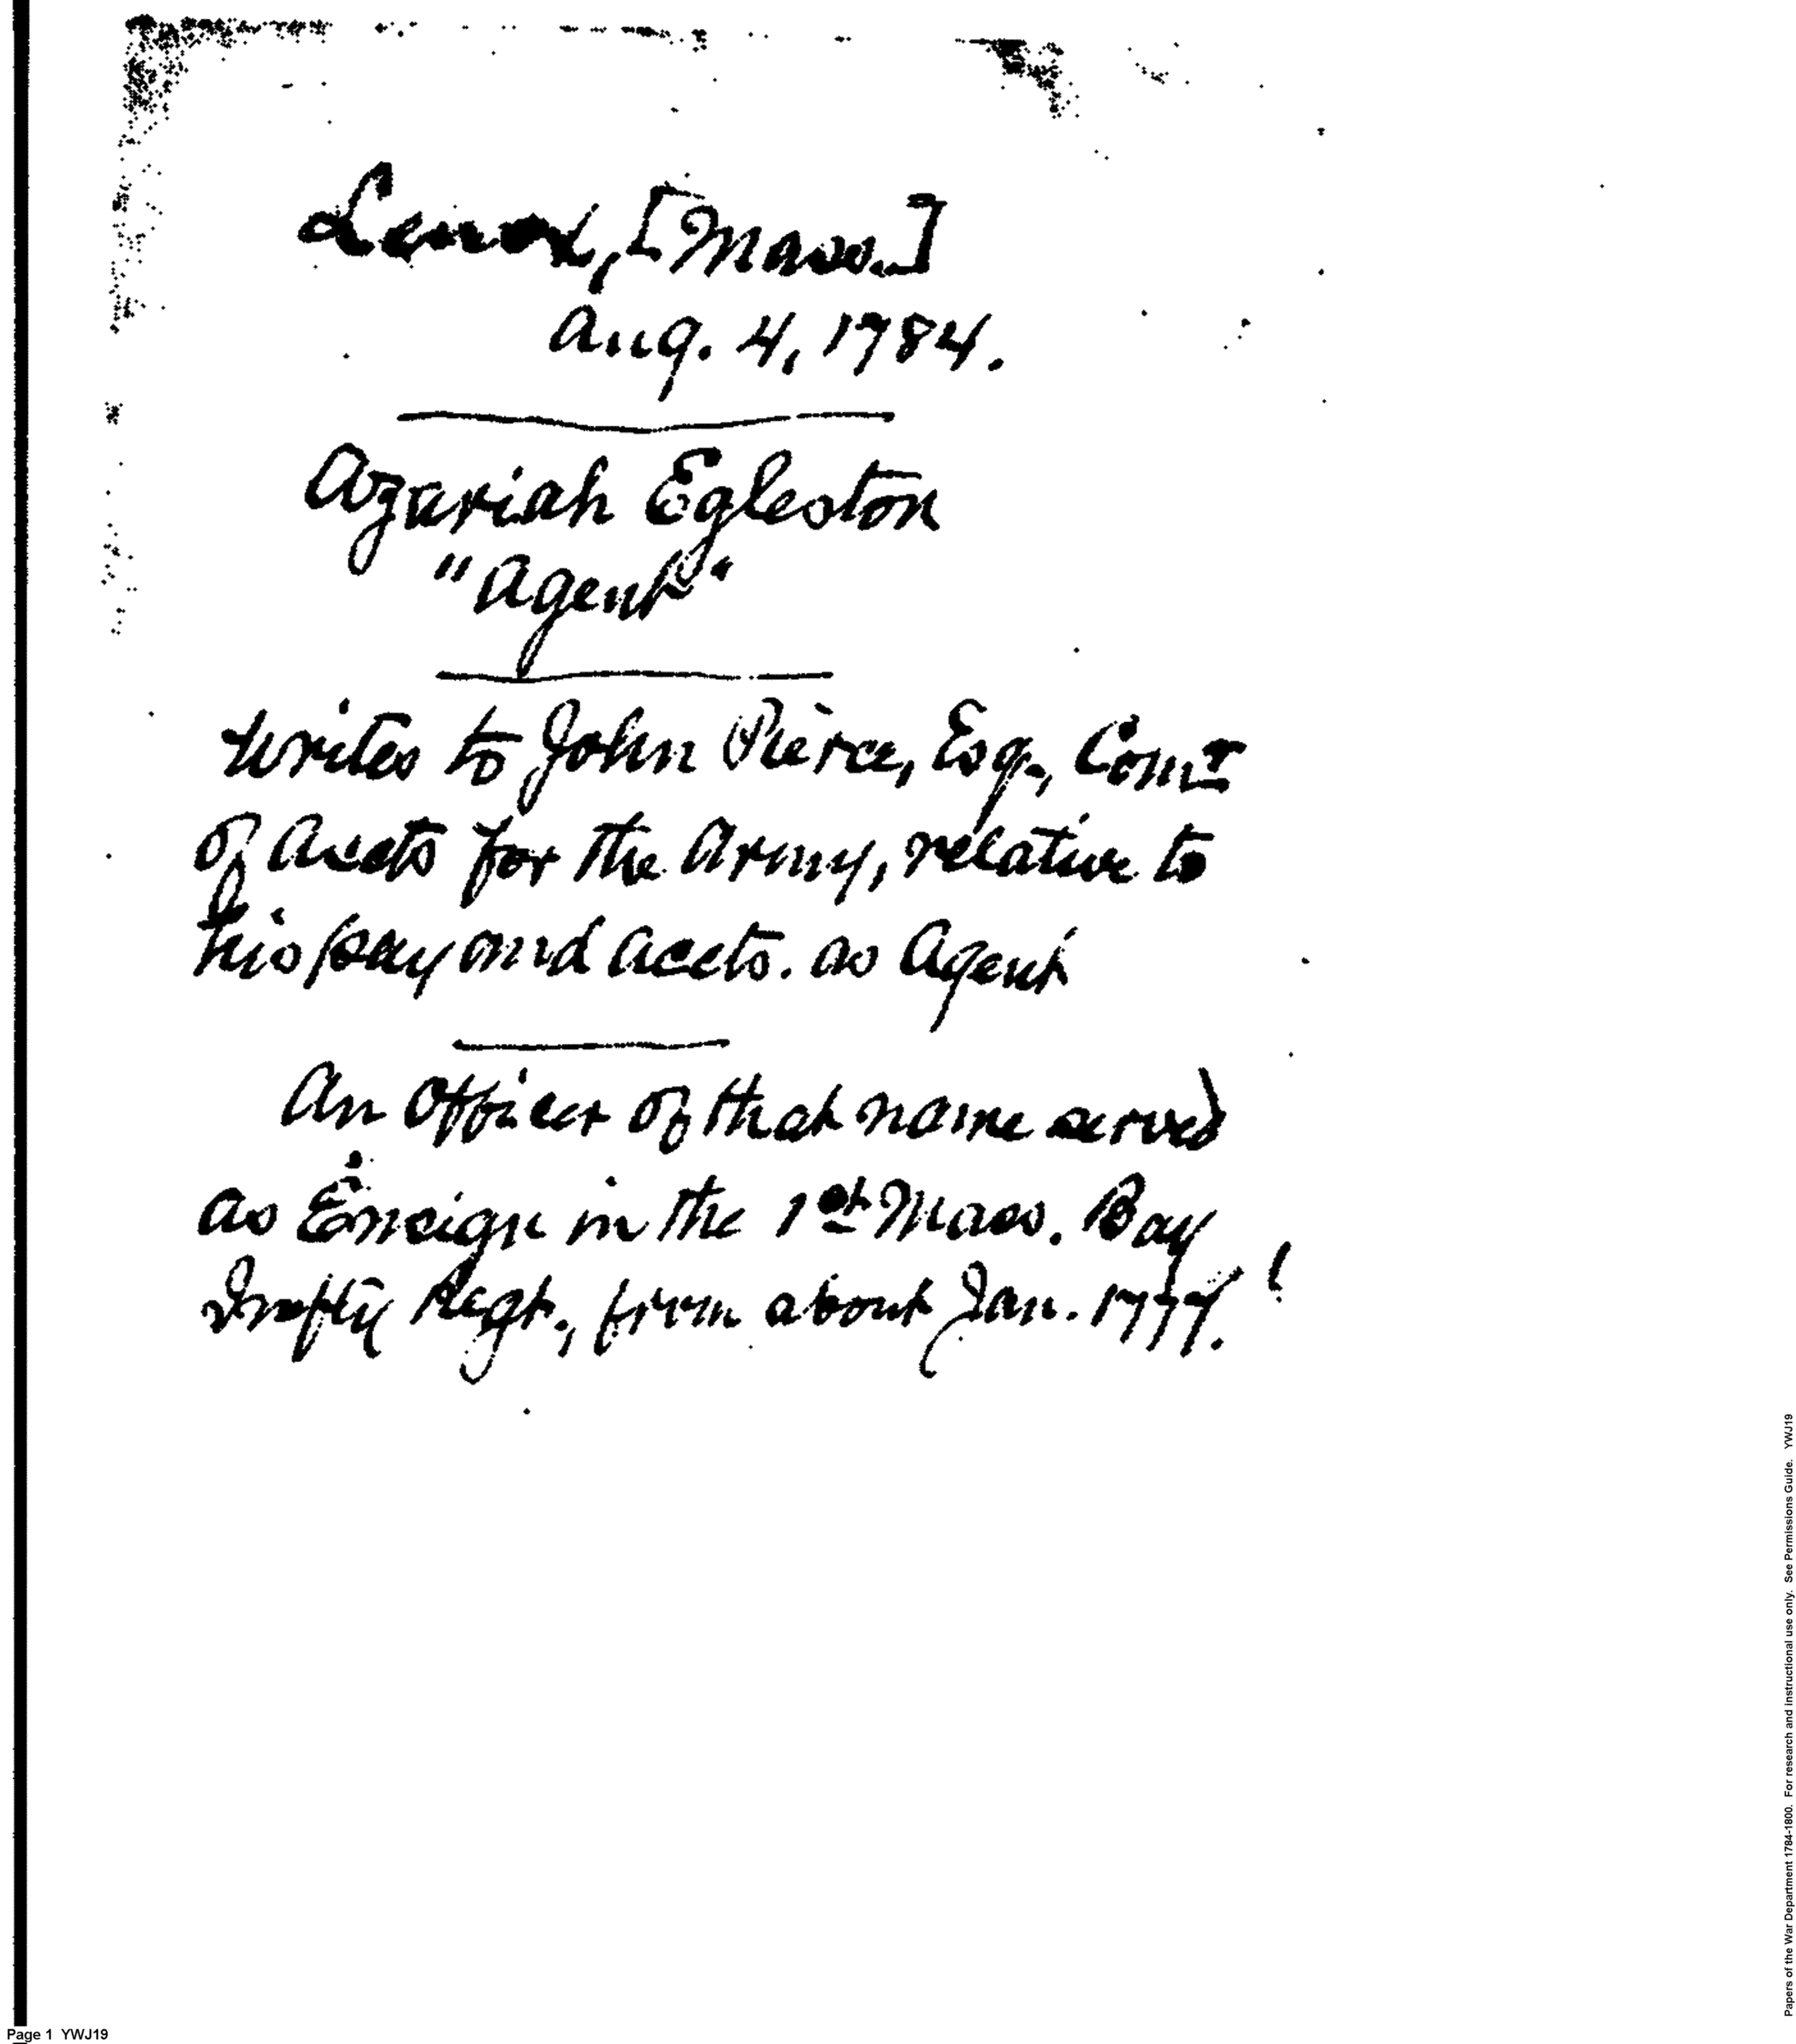 Lenox, [Mass.]
Aug. 4, 1784.
Azariah Egleston
"Agent"
writes to John Pierce, Esq., Comr
of Accts for the Army, relative to
his pay and accts. as Agent
An Officer of that name served
as Ensign in the 1st Mass. Bay
Infty Regt., from about Jan. 1777.
Page 1 YWJ19
Papers of the War Department 1784-1800. For research and instructional use only. See Permissions Guide. YWJ19